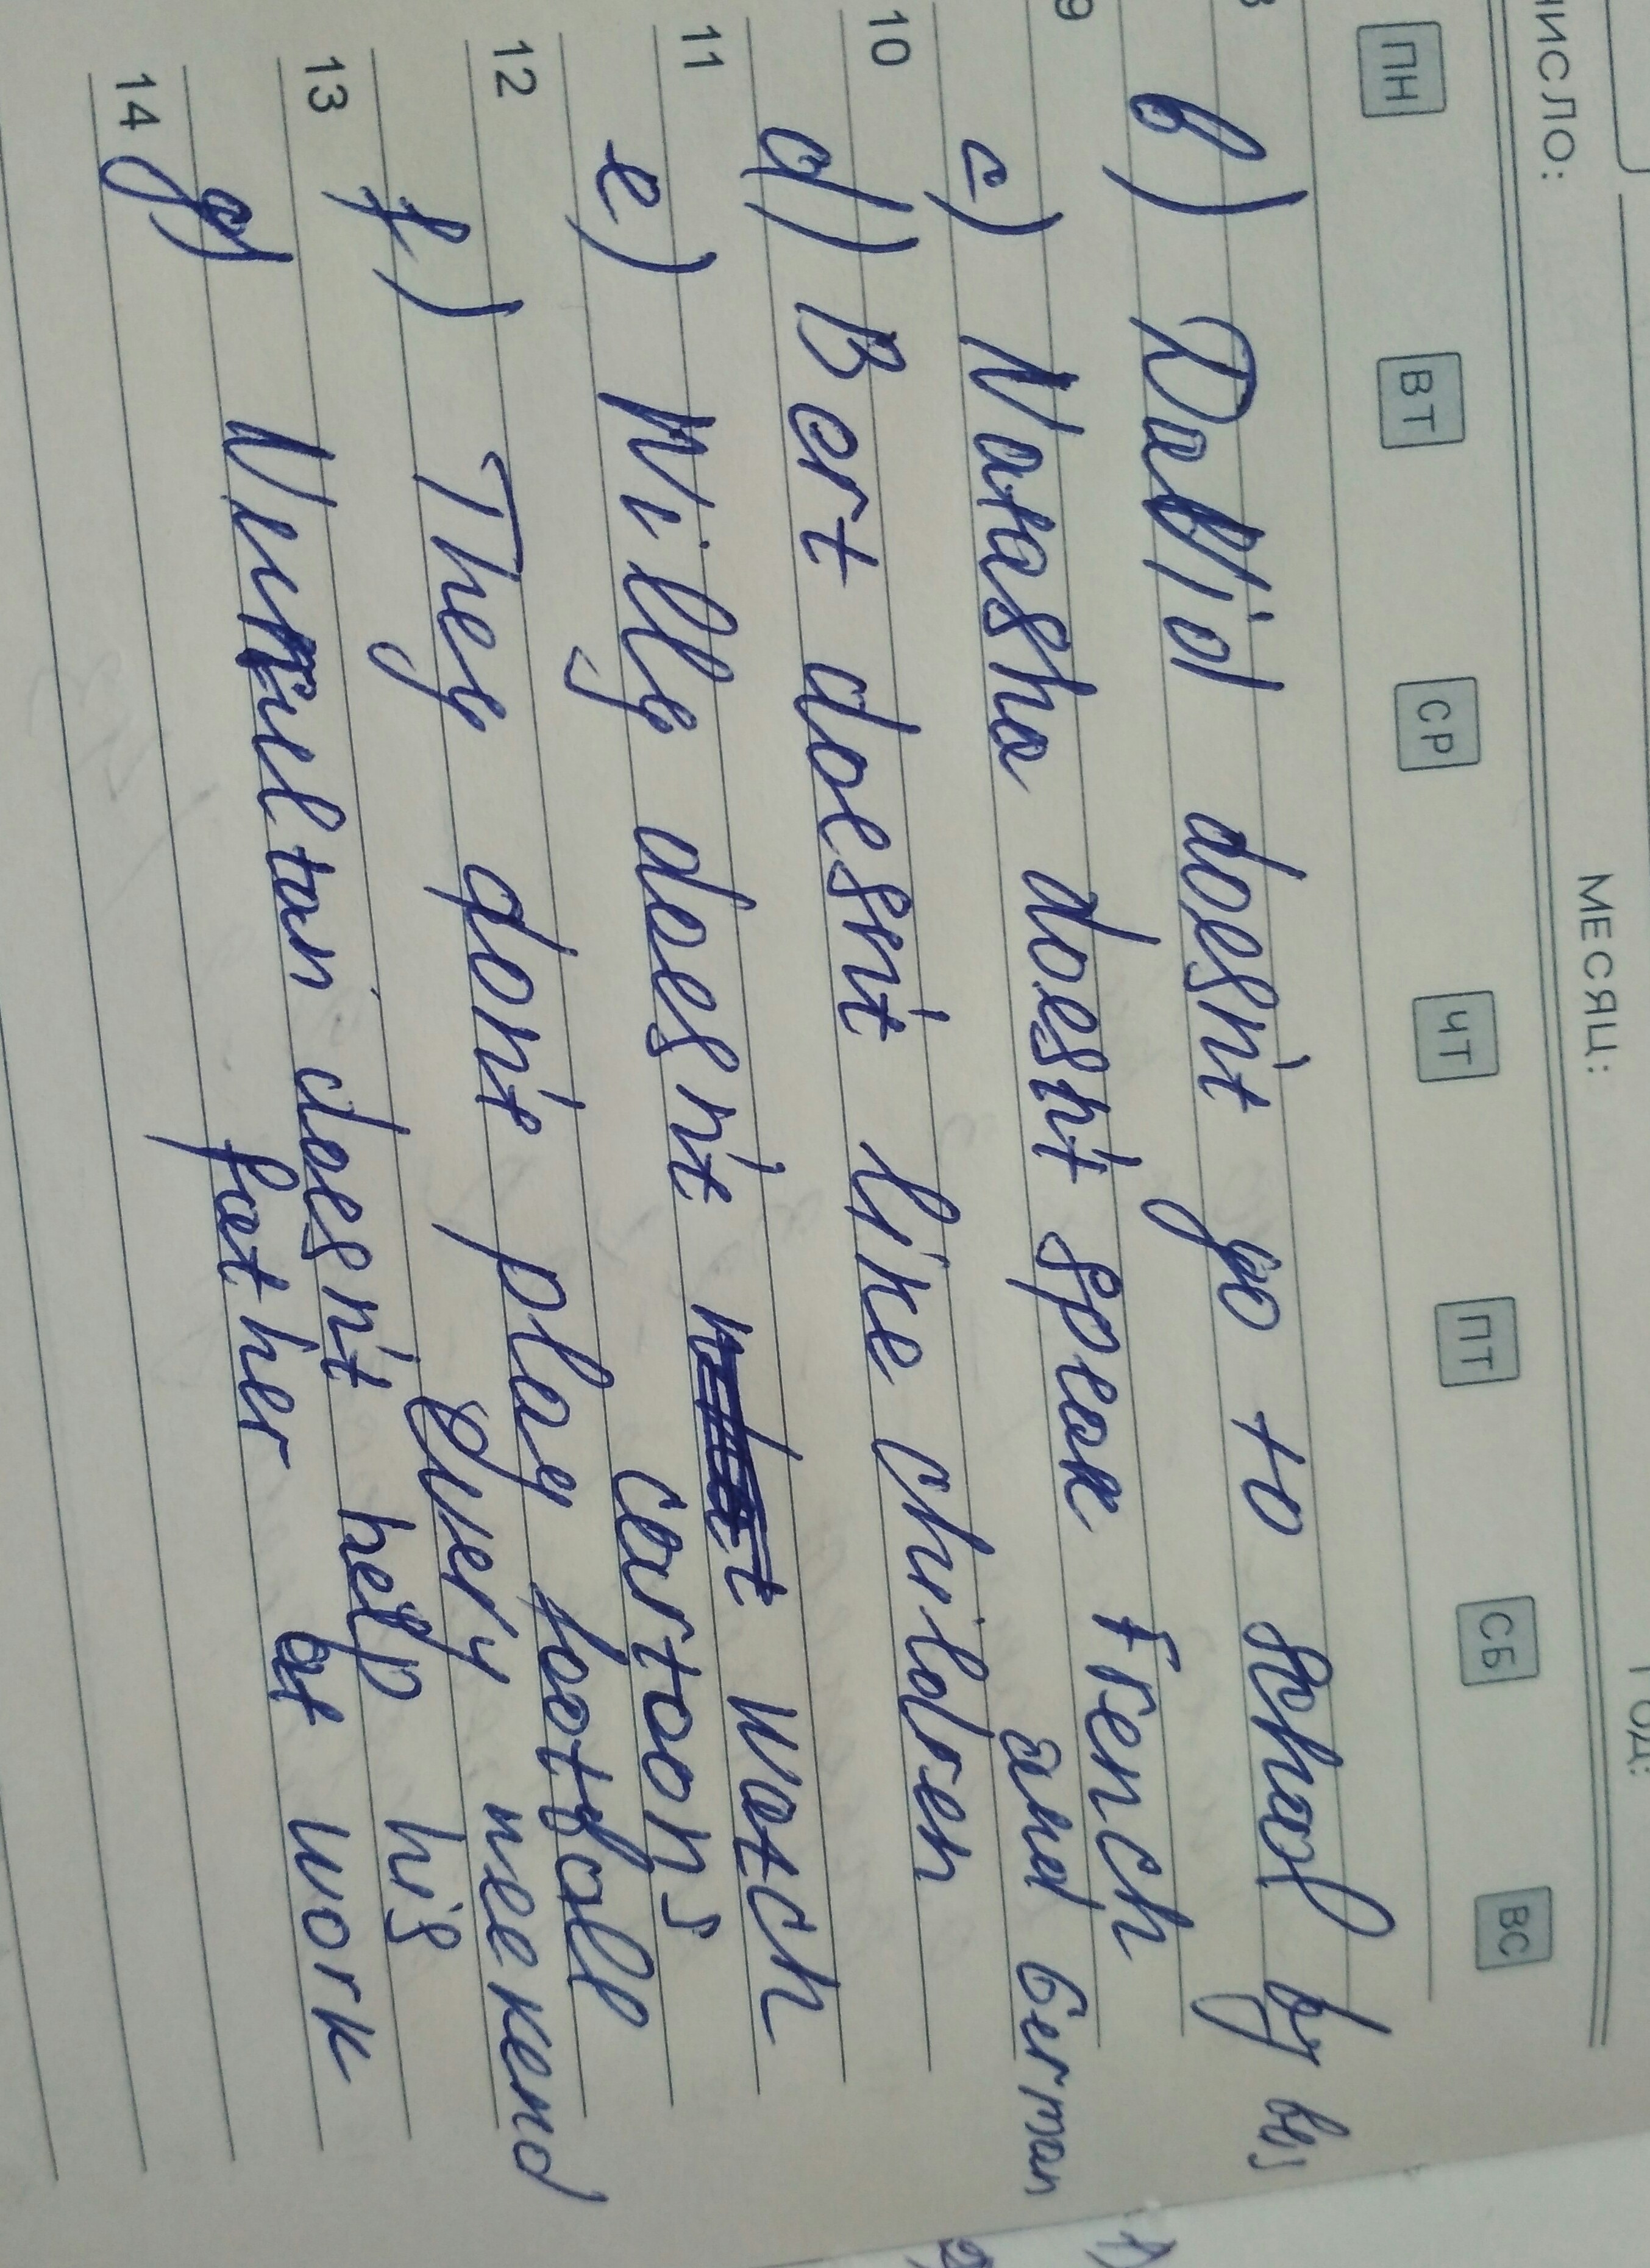 ЧИСЛО: МЕСЯЦ: ГОД:
ПН ВТ СР ЧТ ПТ СБ ВС
8
b) David doesn't go to school by bus
9
c) Natasha doesn't speak French
and German
10
d) Bert doesn't like children
11
e) Willy doesn't watch
cartoons
12
f) They don't play football
every weekend
13
g) doesn't help his
father at work
14